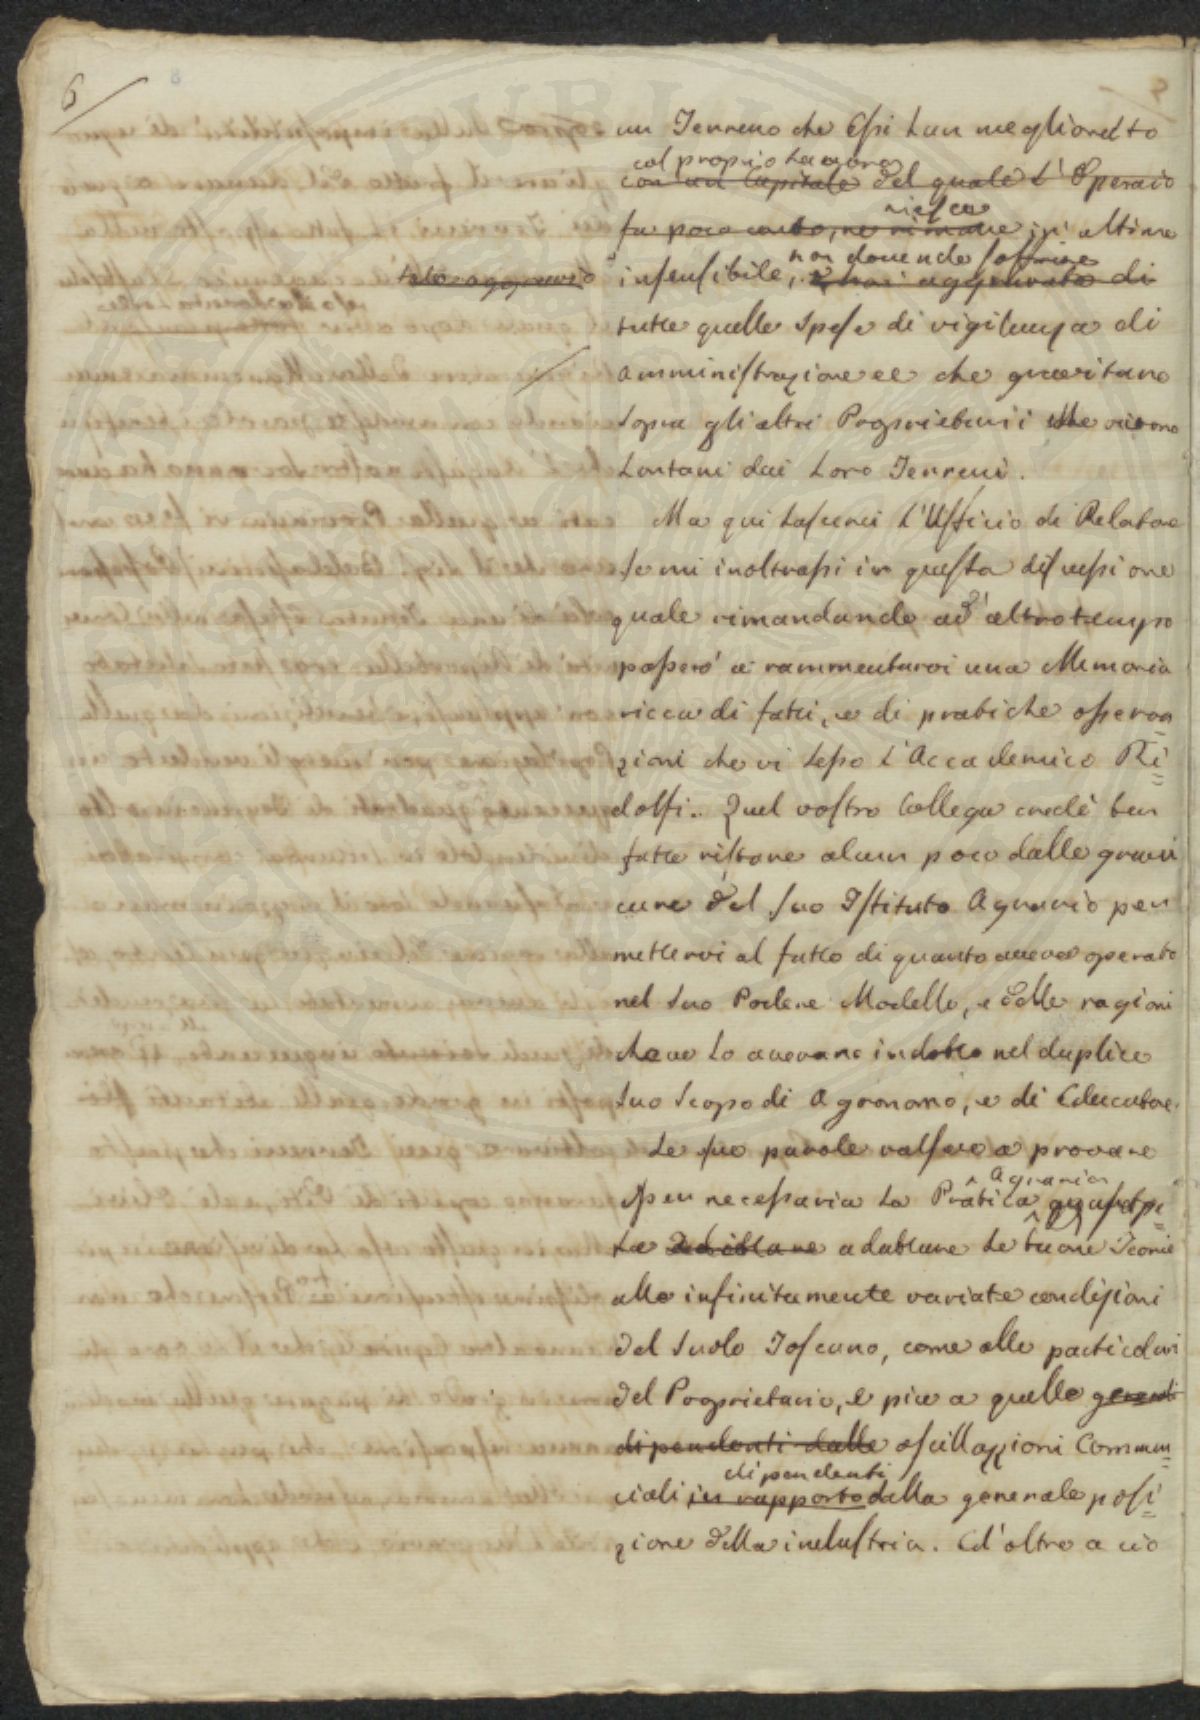 6
un Terreno che Essi han megliorato
col proprio Lavoro
con un Capitale del quale l'Operaio
riesce
fa poco conto, ne rimane in ultimo
non dovendo soffrire
insensibile, e non aggravato di
tale aggravio
tutte quelle spese di vigilanza di
amministrazione ec che gravitano
sopra gli altri Proprietarii che vivono
Lontani dai Loro Terreni.
Ma qui lascerei l'Ufficio di Relatore
se mi inoltrassi in questa discussione
quale rimandando ad altro tempo
passerò a rammentarvi una Memoria
ricca di fatti, e di pratiche osserva=
zioni che vi lesse l'Accademico Ri=
dolfi. Quel vostro Collega credè ben
fatto ristare alcun poco dalle gravi
cure del suo Istituto Agrario per
mettervi al fatto di quanto aveva operato
nel suo Podere Modello, e delle ragioni
che ve lo avevano indotto nel duplice
suo scopo di Agronomo, e di Educatore.
Le sue parole valsero a provare
Agraria
esser necessaria la Pratica
adattare le buone Teorie
alle infinitamente variate condizioni
del suolo Toscano, come alle particolari
del Proprietario, e più a quelle
dipendenti dalle oscillazioni Commer=
dipendenti
ciali in rapporto dalla generale posi=
zione della industria. Ed oltre a ciò